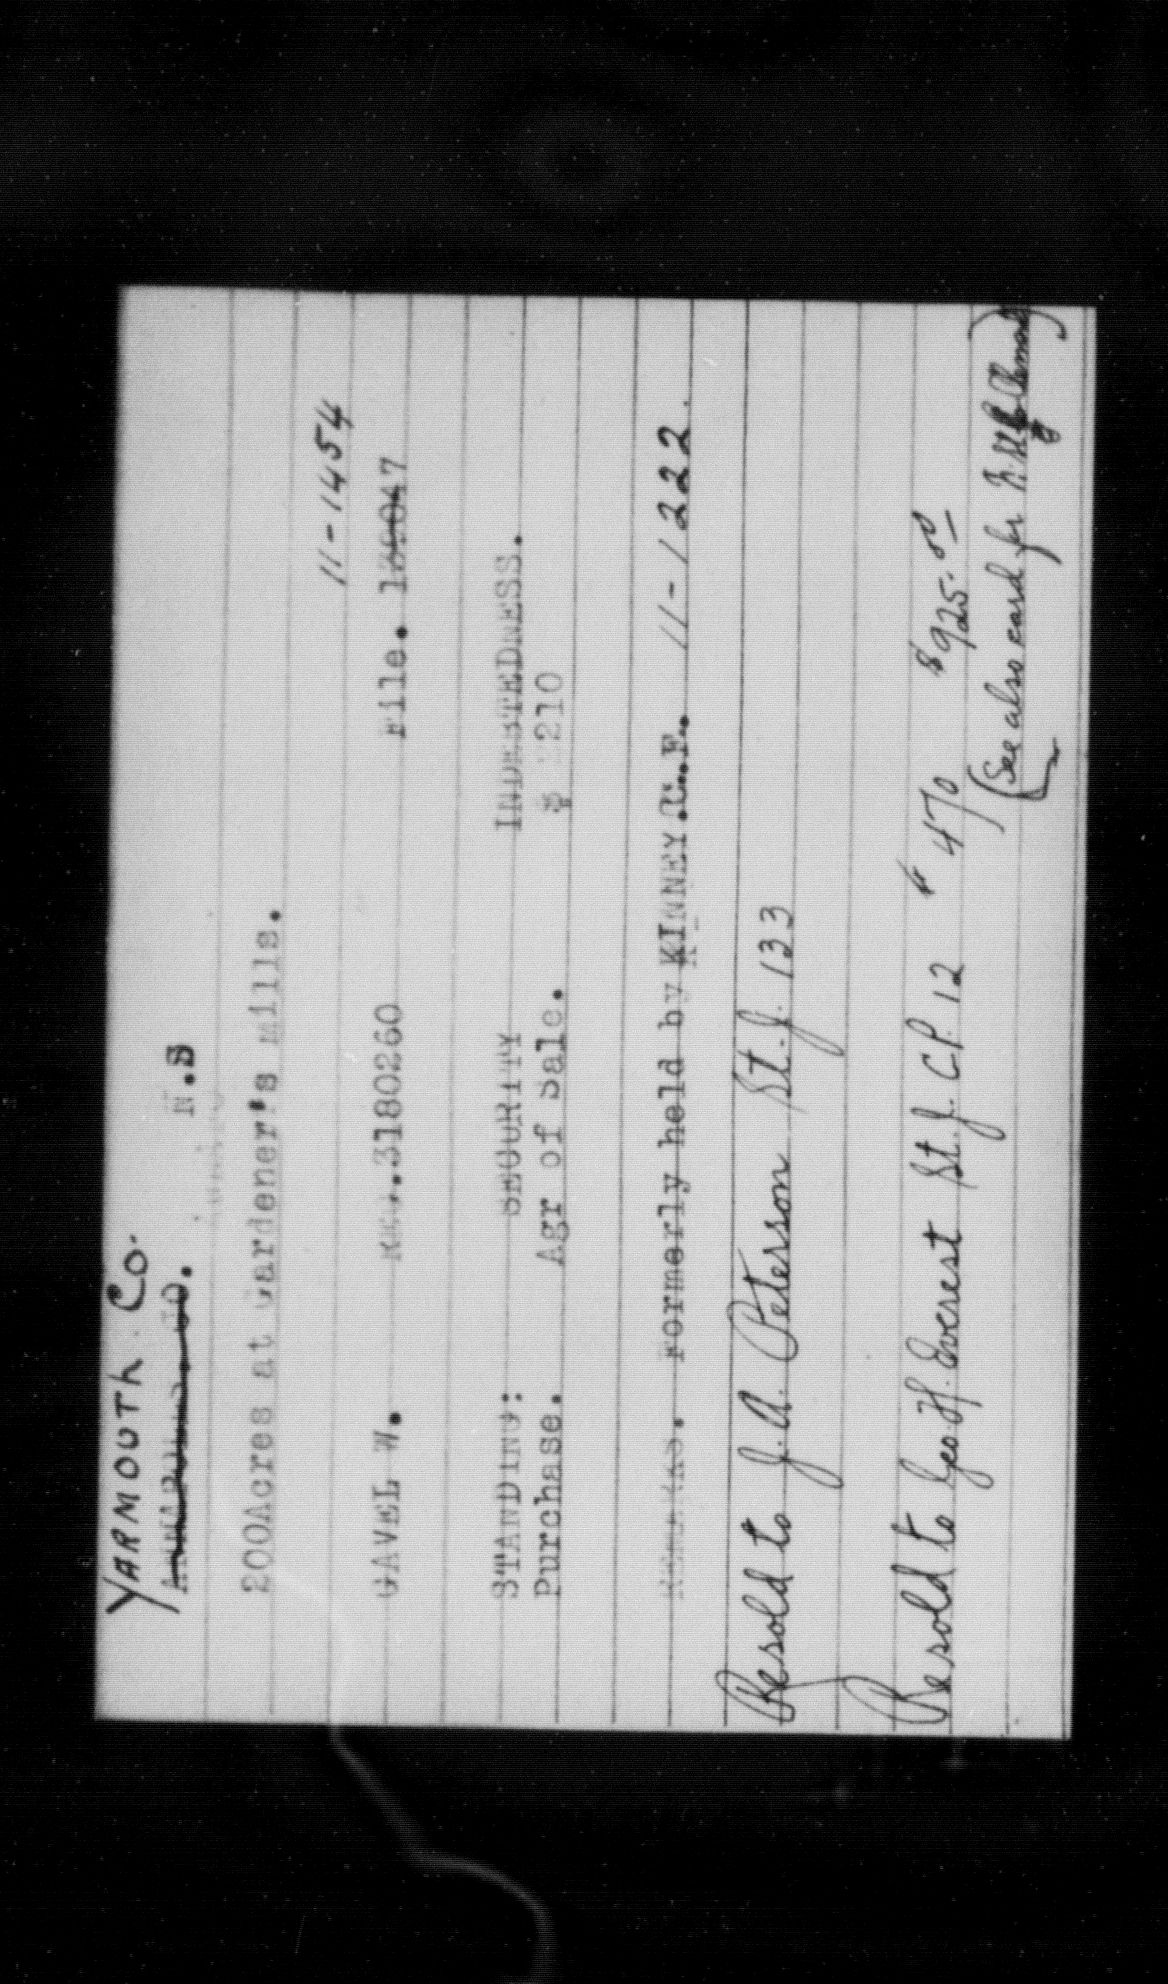 YARMOUTH CO.
ANNAPOLIS. CO. N.S
200Acres at Gardener's mills.
11-1454
GAVEL W. REG.3180260 File. 13047
STANDING: SECURITY INDEBTEDNESS.
Purchase. Agr of Sale. $ 210
REMARKS. Formerly held by KINNEY.U.F. 11-1222.
Resold to J. A. Peterson St. J. 133
Resold to Geo H. Everest St. J. C.P. 12 $470 $925.00
(See also card for